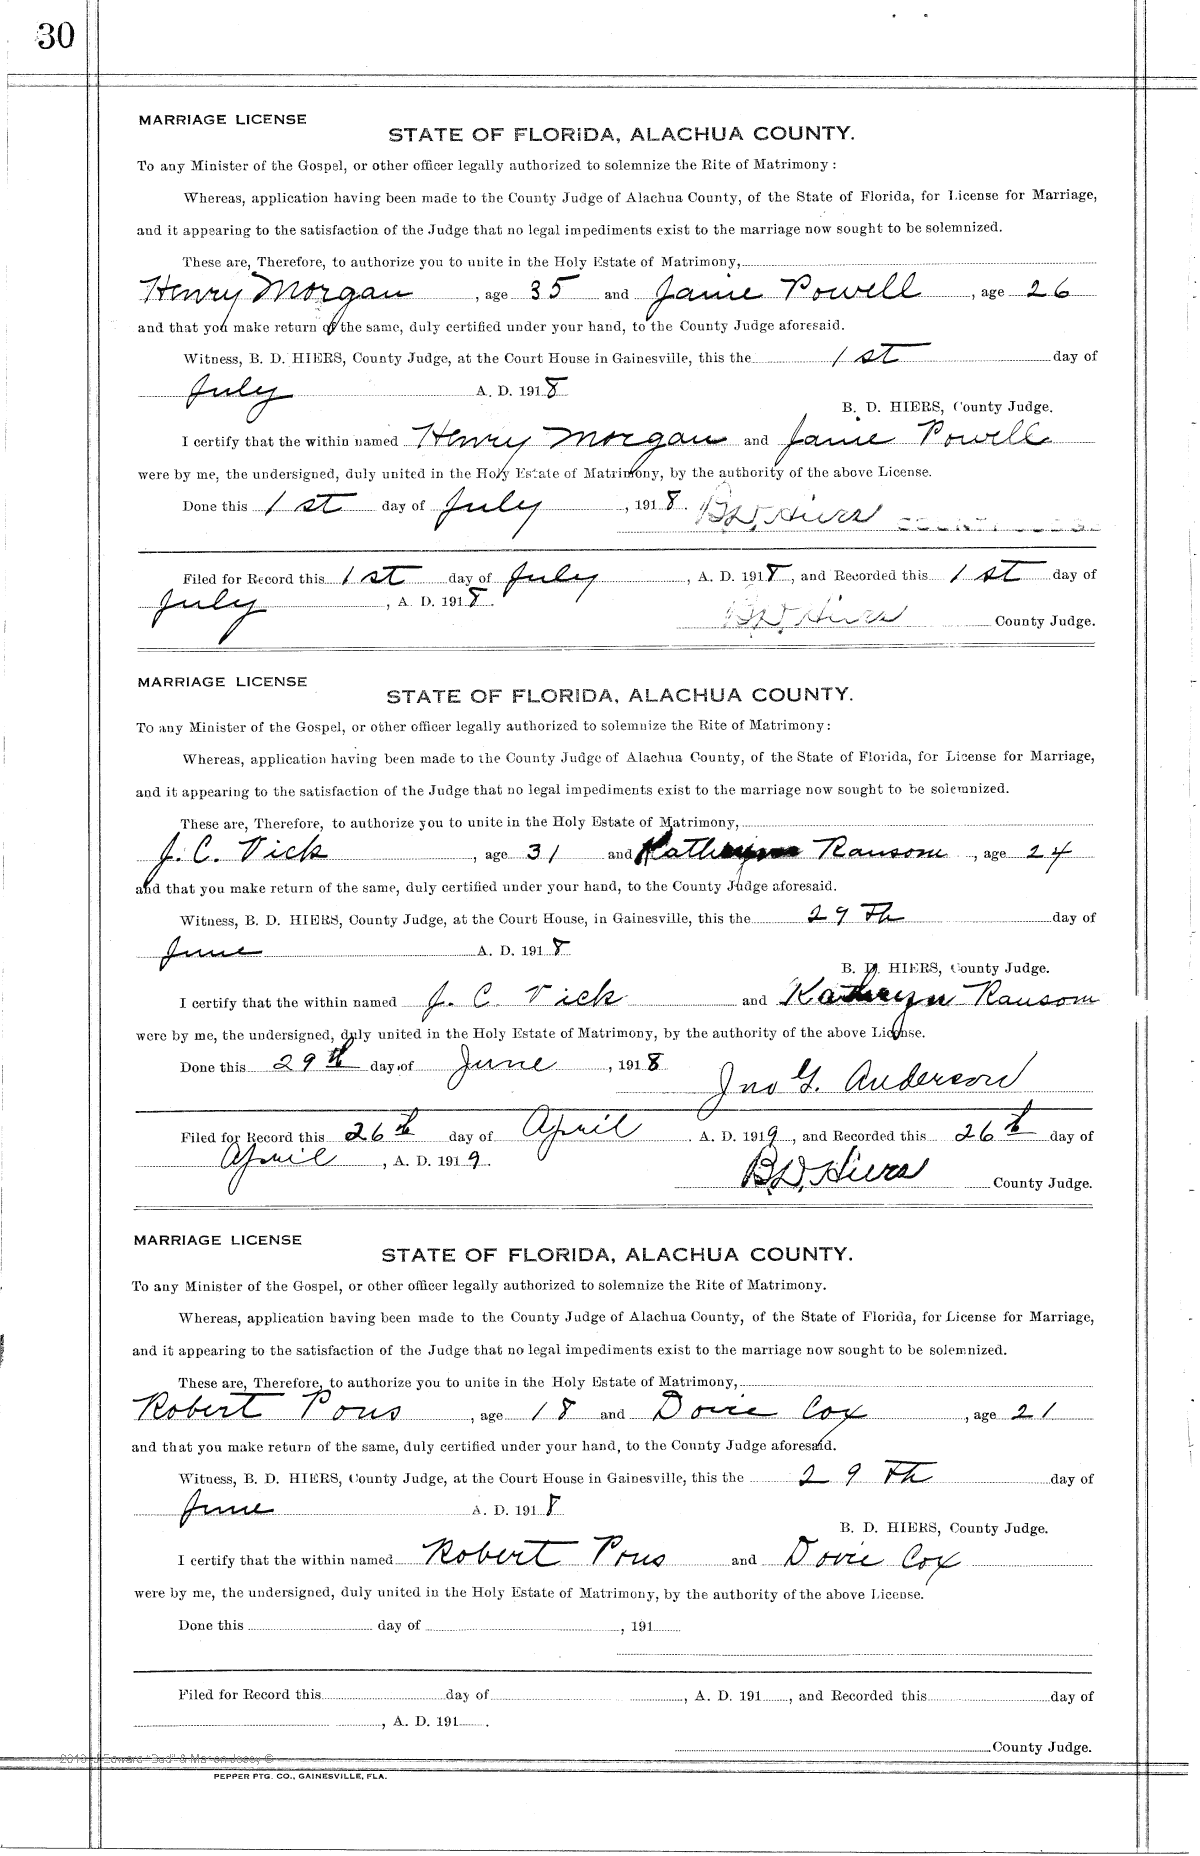 30
MARRIAGE LICENSE
STATE OF FLORIDA, ALACHUA COUNTY.
To any Minister of the Gospel, or other officer legally authorized to solemnize the Rite of Matrimony :
Whereas, application having been made to the County Judge of Alachua County, of the State of Florida, for License for Marriage,
and it appearing to the satisfaction of the Judge that no legal impediments exist to the marriage now sought to be solemnized.
These are, Therefore, to authorize you to unite in the Holy Estate of Matrimony,
Henry Morgan , age 35 and Janie Powell , age 26
and that you make return of the same, duly certified under your hand, to the County Judge aforesaid.
Witness, B. D. HIERS, County Judge, at the Court House in Gainesville, this the 1st day of
July A. D. 1918
B. D. HIERS, County Judge.
I certify that the within named Henry Morgan and Janie Powell
were by me, the undersigned, duly united in the Holy Estate of Matrimony, by the authority of the above License.
Done this 1st day of July , 1918. B.D. Hiers COUNTY JUDGE
Filed for Record this 1st day of July , A. D. 1918, and Recorded this 1st day of
July , A. D. 1918.
B.D. Hiers County Judge.
MARRIAGE LICENSE
STATE OF FLORIDA, ALACHUA COUNTY.
To any Minister of the Gospel, or other officer legally authorized to solemnize the Rite of Matrimony:
Whereas, application having been made to the County Judge of Alachua County, of the State of Florida, for License for Marriage,
and it appearing to the satisfaction of the Judge that no legal impediments exist to the marriage now sought to be solemnized.
These are, Therefore, to authorize you to unite in the Holy Estate of Matrimony,
J. C. Vick , age 31 and Kathryn Ransom , age 24
and that you make return of the same, duly certified under your hand, to the County Judge aforesaid.
Witness, B. D. HIERS, County Judge, at the Court House, in Gainesville, this the 29th day of
June A. D. 1918
B. D. HIERS, County Judge.
I certify that the within named J. C. Vick and Kathryn Ransom
were by me, the undersigned, duly united in the Holy Estate of Matrimony, by the authority of the above License.
Done this 29th day of June , 1918
Jno G. Anderson
Filed for Record this 26th day of April A. D. 1919, and Recorded this 26th day of
April , A. D. 1919.
B.D. Hiers County Judge.
MARRIAGE LICENSE
STATE OF FLORIDA, ALACHUA COUNTY.
To any Minister of the Gospel, or other officer legally authorized to solemnize the Rite of Matrimony.
Whereas, application having been made to the County Judge of Alachua County, of the State of Florida, for License for Marriage,
and it appearing to the satisfaction of the Judge that no legal impediments exist to the marriage now sought to be solemnized.
These are, Therefore, to authorize you to unite in the Holy Estate of Matrimony,
Robert Pons , age 18 and Dovie Cox , age 21
and that you make return of the same, duly certified under your hand, to the County Judge aforesaid.
Witness, B. D. HIERS, County Judge, at the Court House in Gainesville, this the 29th day of
June A. D. 1918
B. D. HIERS, County Judge.
I certify that the within named Robert Pons and Dovie Cox
were by me, the undersigned, duly united in the Holy Estate of Matrimony, by the authority of the above License.
Done this day of , 191
Filed for Record this day of , A. D. 191 , and Recorded this day of
, A. D. 191 .
County Judge.
PEPPER PTG. CO., GAINESVILLE, FLA.